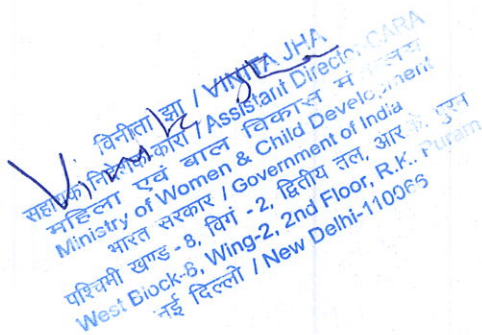 विनीता झा / VINITA JHA
सहायक निदेशक-कारा / Assistant Director-CARA
महिला एवं बाल विकास मंत्रालय
Ministry of Women & Child Development
भारत सरकार / Government of India
पश्चिमी खण्ड - 8, विंग - 2, द्वितीय तल, आर.के. पुरम
West Block-8, Wing-2, 2nd Floor, R.K. Puram
नई दिल्ली / New Delhi-110066